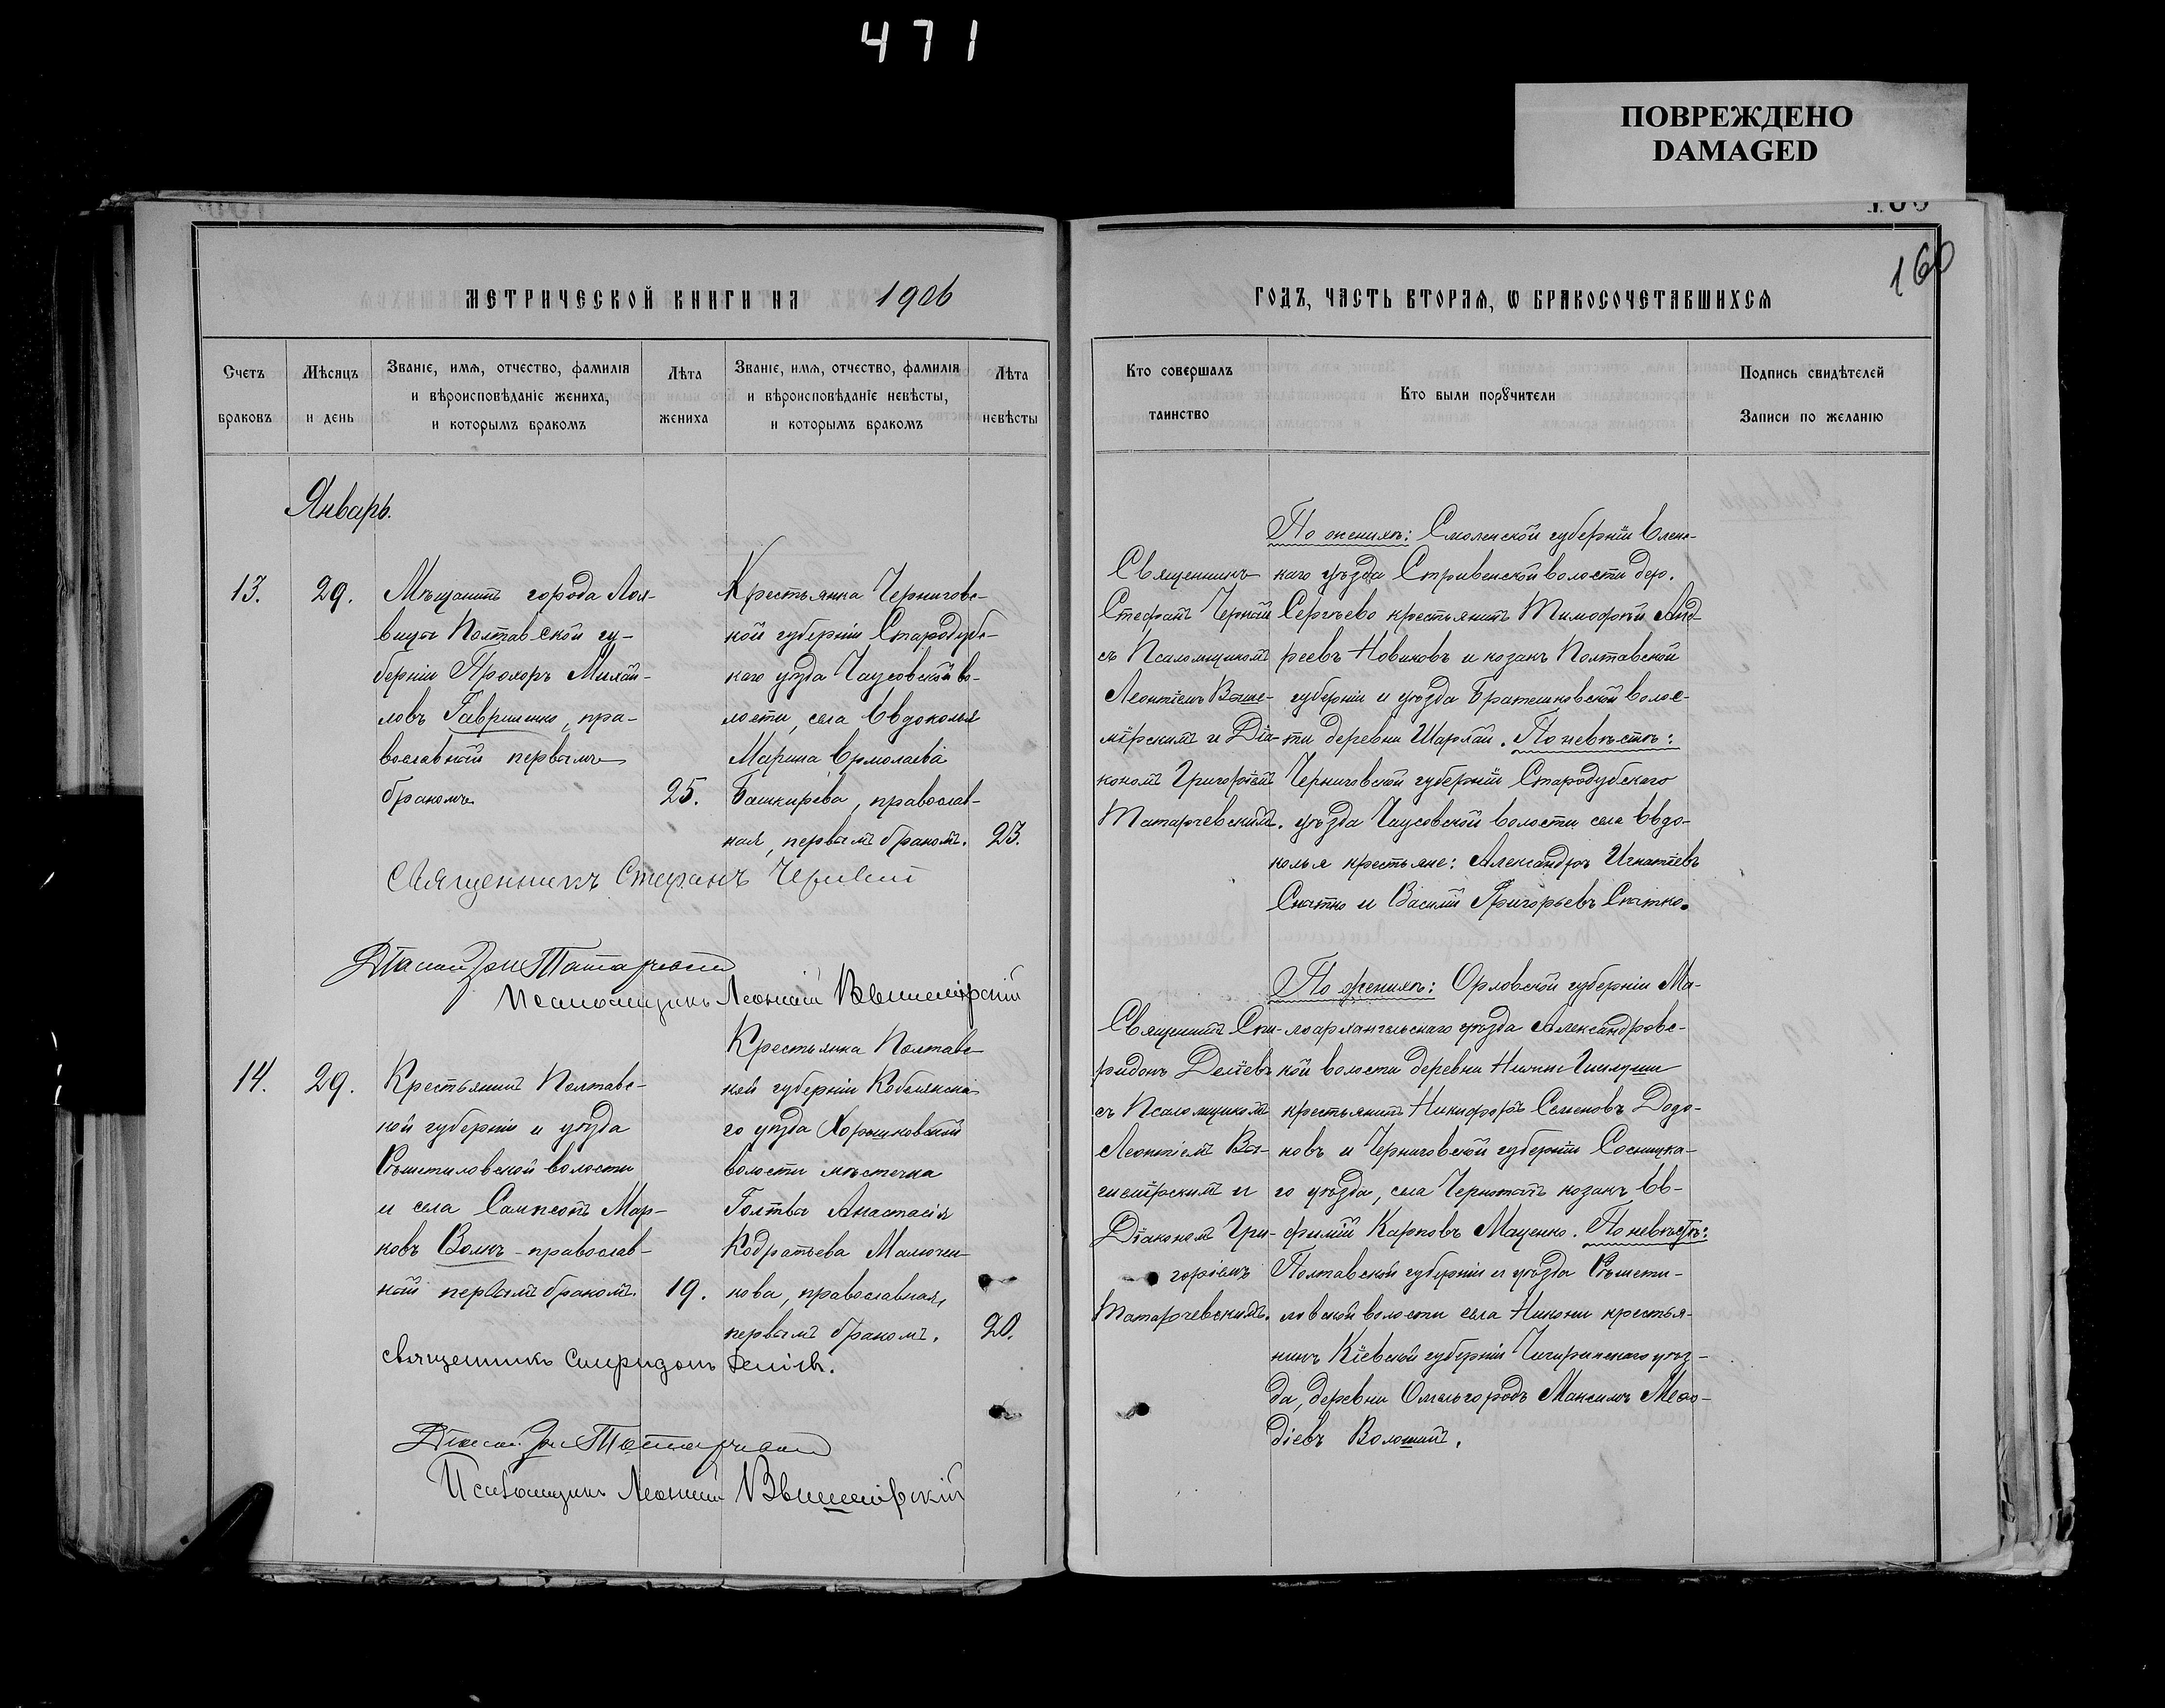 471
ПОВРЕЖДЕНО
DAMAGED
160
МЕТРИЧЕСКОЙ КНИГИ НА 1906
Счетъ браковъ
Мѣсяцъ и день
Званіе, имя, отчество, фамилія
и вѣроисповѣданіе жениха,
и которымъ бракомъ
Лѣта жениха
Званіе, имя, отчество, фамилія
и вѣроисповѣданіе невѣсты,
и которымъ бракомъ
Лѣта невѣсты
Январь.
13.
29.
Мѣщанинъ города Лох-
вицы Полтавской гу-
берніи Прохоръ Михай-
ловъ Гавриленко, пра-
вославный первымъ
бракомъ
25.
Крестьянка Черниговс-
кой губерніи Стародубс-
каго уѣзда Чаусовской во-
лости, села Евдоколья
Марина Ермолаева
Башкирева, православ-
ная, первымъ бракомъ.
23.
Священникъ Стефанъ Черный
Діаконъ Гри Татарчевскій
Псаломщикъ Леонтій Вышемірскій
14.
29.
Крестьянинъ Полтавс-
кой губерніи и уѣзда
волости
и села Сампсонъ Мар-
ковъ Волкъ - православ-
ный первымъ бракомъ.
19.
Крестьянка Полтавс-
кой губерніи Кобелякска-
го уѣзда Хорошковской
волости мѣстечка
Голтвы Анастасія
Кодратьева Малючен-
кова, православная,
первымъ бракомъ.
20.
Священникъ Спиридонъ Деліевъ.
Діаконъ Гри Татарчевскій
Псаломщикъ Леонтій Вышемірскій
ГОДЪ, ЧАСТЬ ВТОРАЯ, Ѡ БРАКОСОЧЕТАВШИХСЯ
Кто совершалъ
таинство
Кто были порꙋчители
Подпись свидѣтелей
Записи по желанію
Священникъ
Стефанъ Черный
съ Псаломщикомъ
Леонтіемъ Выше-
мірскимъ и Діа-
кономъ Григоріемъ
Татарчевскимъ.
По женихѣ: Смоленской губерніи Елень-
каго уѣзда Стривенской волости дер.
Сергѣево крестьянинъ Тимофей Анд-
реевъ Новиковъ и козакъ Полтавской
губерніи и уѣзда Братешковской волос-
ти деревни Шарлай. По невѣстѣ:
Черниговской губерніи Стародубскаго
уѣзда Чаусовской волости села Евдо-
колья крестьяне: Александръ Игнатіевъ
Снатко и Василій Григорьевъ Снатко.
Священникъ Спи-
ридонъ Деліевъ
съ Псаломщикомъ
Леонтіемъ Вы-
шемірскимъ и
Діакономъ Гри-
горіемъ
Татарчевскимъ.
По женихѣ: Орловской губерніи Ма-
лоархангельскаго уѣзда Александровс-
кой волости деревни
крестьянинъ Никифоръ Семеновъ Додо-
новъ и Черниговской губерніи Сосницка-
го уѣзда, села Чернотичъ козакъ Ев-
фимій Карповъ Маценко. По невѣстѣ:
Полтавской губерніи и уѣзда
волости села крестья-
нинъ Кіевской губерніи Чигиринскаго уѣз-
да, деревни Омельгородъ Максимъ Меѳо-
діевъ Волошинъ.